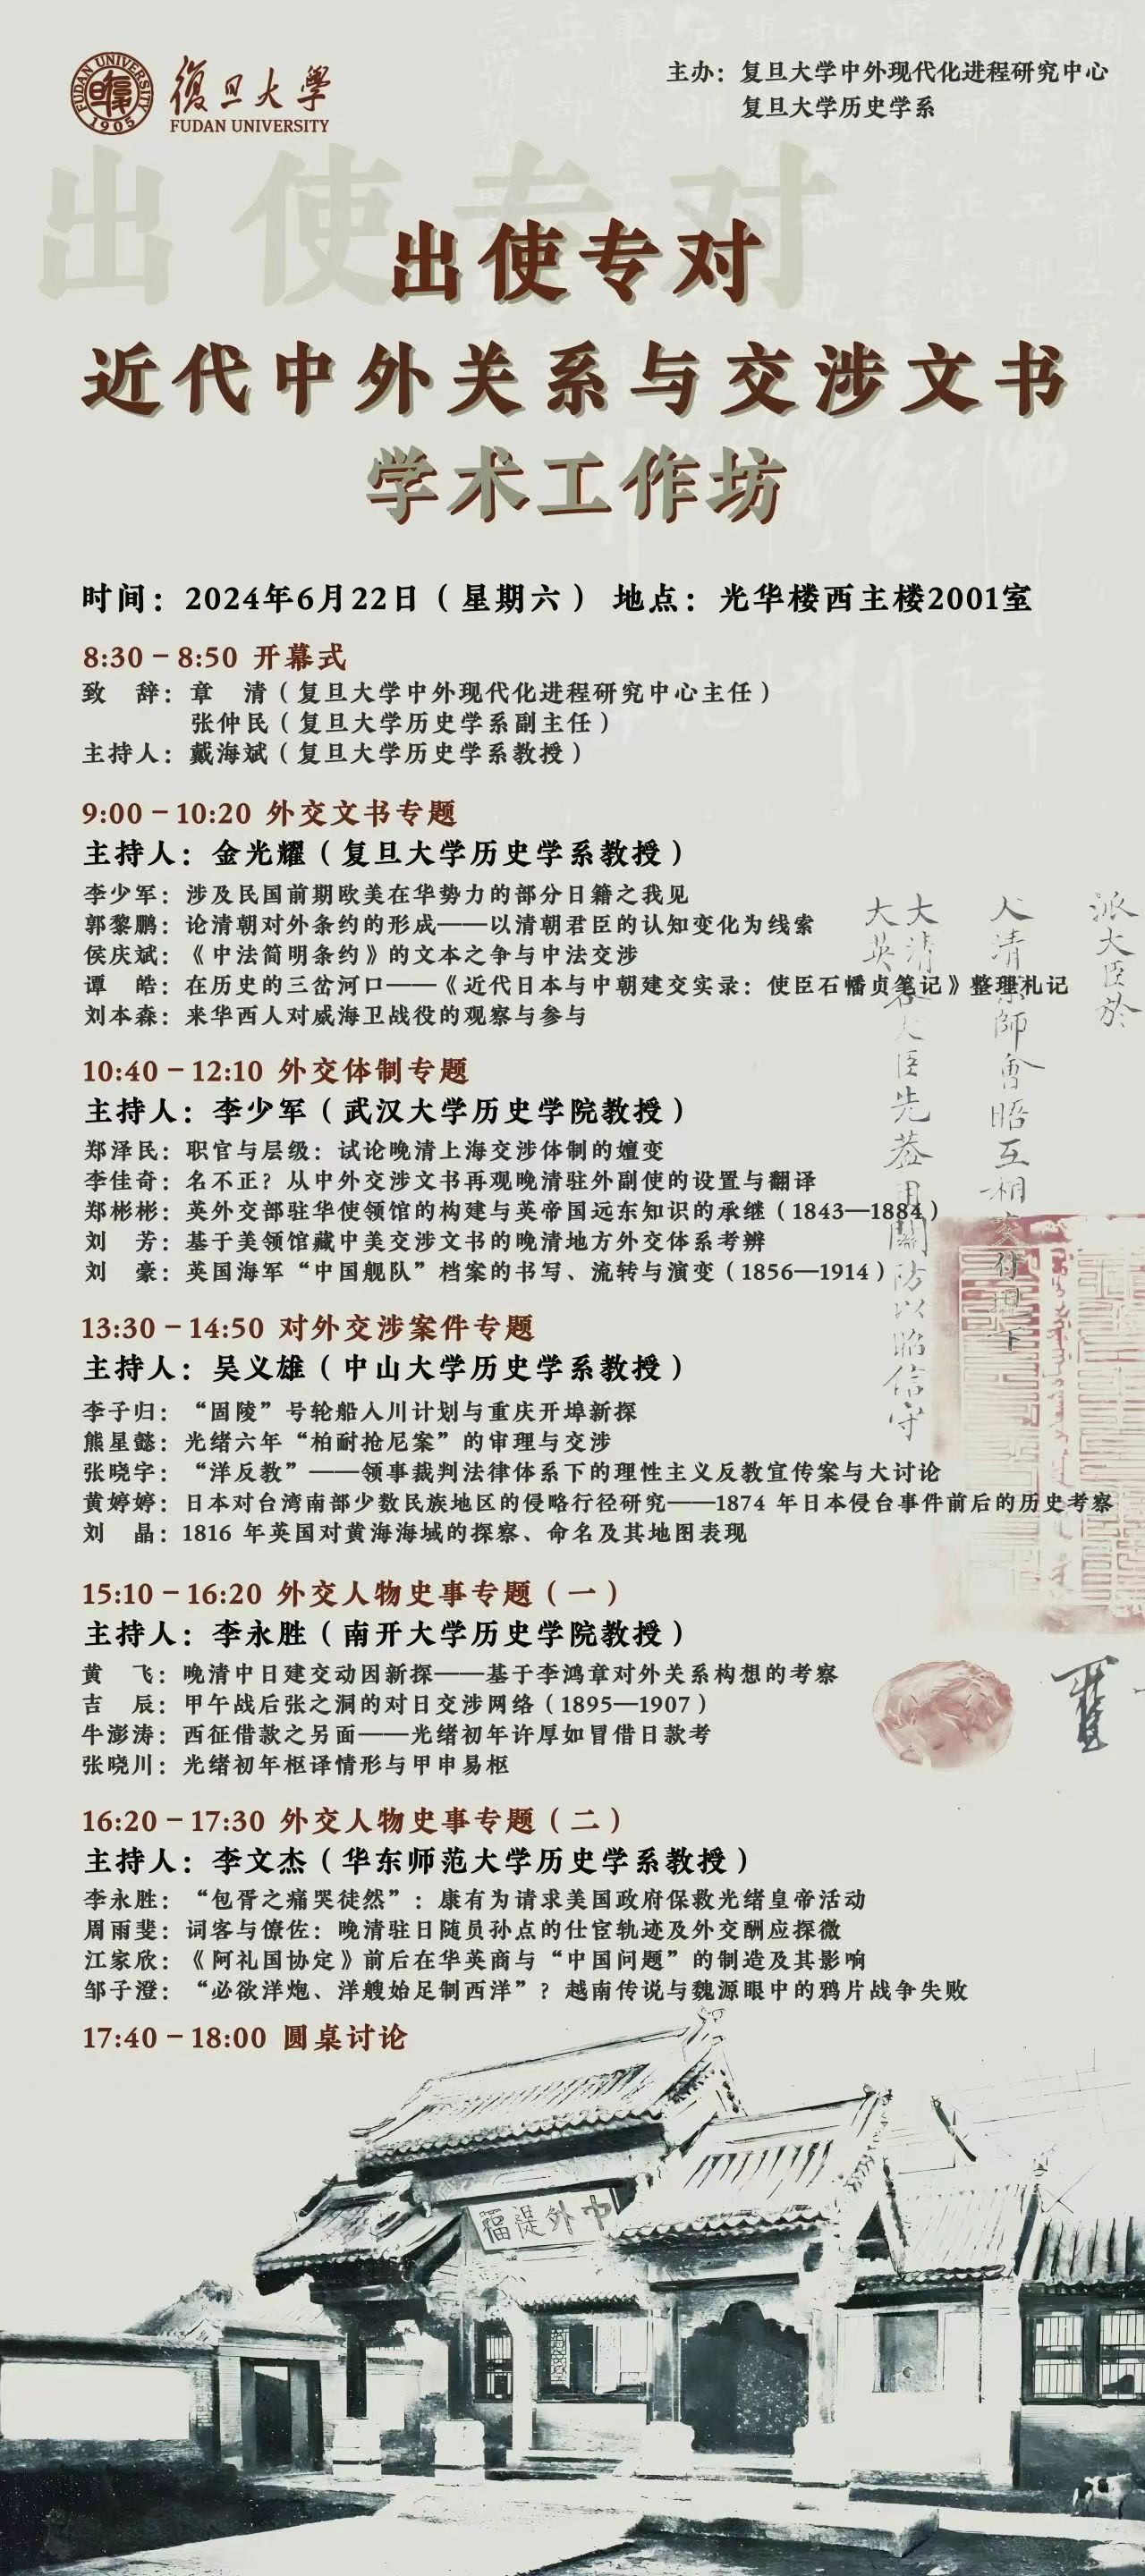 復旦大學
FUDAN UNIVERSITY
FUDAN UNIVERSITY
1905
主办：复旦大学中外现代化进程研究中心
复旦大学历史学系
出使专对
出使专对
近代中外关系与交涉文书
学术工作坊
时间：2024年6月22日（星期六） 地点：光华楼西主楼2001室
8:30－8:50 开幕式
致　辞：章　清（复旦大学中外现代化进程研究中心主任）
张仲民（复旦大学历史学系副主任）
主持人：戴海斌（复旦大学历史学系教授）
9:00－10:20 外交文书专题
主持人：金光耀（复旦大学历史学系教授）
李少军：涉及民国前期欧美在华势力的部分日籍之我见
郭黎鹏：论清朝对外条约的形成——以清朝君臣的认知变化为线索
侯庆斌：《中法简明条约》的文本之争与中法交涉
谭　皓：在历史的三岔河口——《近代日本与中朝建交实录：使臣石幡贞笔记》整理札记
刘本森：来华西人对威海卫战役的观察与参与
10:40－12:10 外交体制专题
主持人：李少军（武汉大学历史学院教授）
郑泽民：职官与层级：试论晚清上海交涉体制的嬗变
李佳奇：名不正？从中外交涉文书再观晚清驻外副使的设置与翻译
郑彬彬：英外交部驻华使领馆的构建与英帝国远东知识的承继（1843—1884）
刘　芳：基于美领馆藏中美交涉文书的晚清地方外交体系考辨
刘　豪：英国海军“中国舰队”档案的书写、流转与演变（1856—1914）
13:30－14:50 对外交涉案件专题
主持人：吴义雄（中山大学历史学系教授）
李子归：“固陵”号轮船入川计划与重庆开埠新探
熊星懿：光绪六年“柏耐抢尼案”的审理与交涉
张晓宇：“洋反教”——领事裁判法律体系下的理性主义反教宣传案与大讨论
黄婷婷：日本对台湾南部少数民族地区的侵略行径研究——1874 年日本侵台事件前后的历史考察
刘　晶：1816 年英国对黄海海域的探察、命名及其地图表现
15:10－16:20 外交人物史事专题（一）
主持人：李永胜（南开大学历史学院教授）
黄　飞：晚清中日建交动因新探——基于李鸿章对外关系构想的考察
吉　辰：甲午战后张之洞的对日交涉网络（1895—1907）
牛澎涛：西征借款之另面——光绪初年许厚如冒借日款考
张晓川：光绪初年枢译情形与甲申易枢
16:20－17:30 外交人物史事专题（二）
主持人：李文杰（华东师范大学历史学系教授）
李永胜：“包胥之痛哭徒然”：康有为请求美国政府保救光绪皇帝活动
周雨斐：词客与僚佐：晚清驻日随员孙点的仕宦轨迹及外交酬应探微
江家欣：《阿礼国协定》前后在华英商与“中国问题”的制造及其影响
邹子澄：“必欲洋炮、洋艘始足制西洋”？越南传说与魏源眼中的鸦片战争失败
17:40－18:00 圆桌讨论
派大臣於
清 師會晤互相 付
大清
大英 大臣先蓋用關防以昭信守
中外禔福